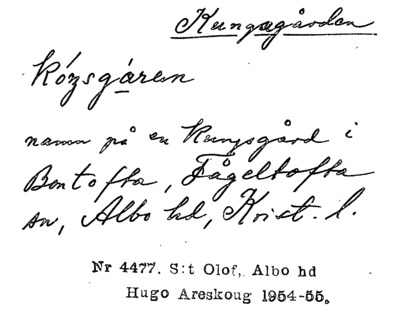 Kungagården
kózsgárɛn
namn på en kungsgård i
Bontofta, Fågeltofta
sn, Albo hd, Krist. l.
Nr 4477. S:t Olof, Albo hd
Hugo Areskoug 1954-55.